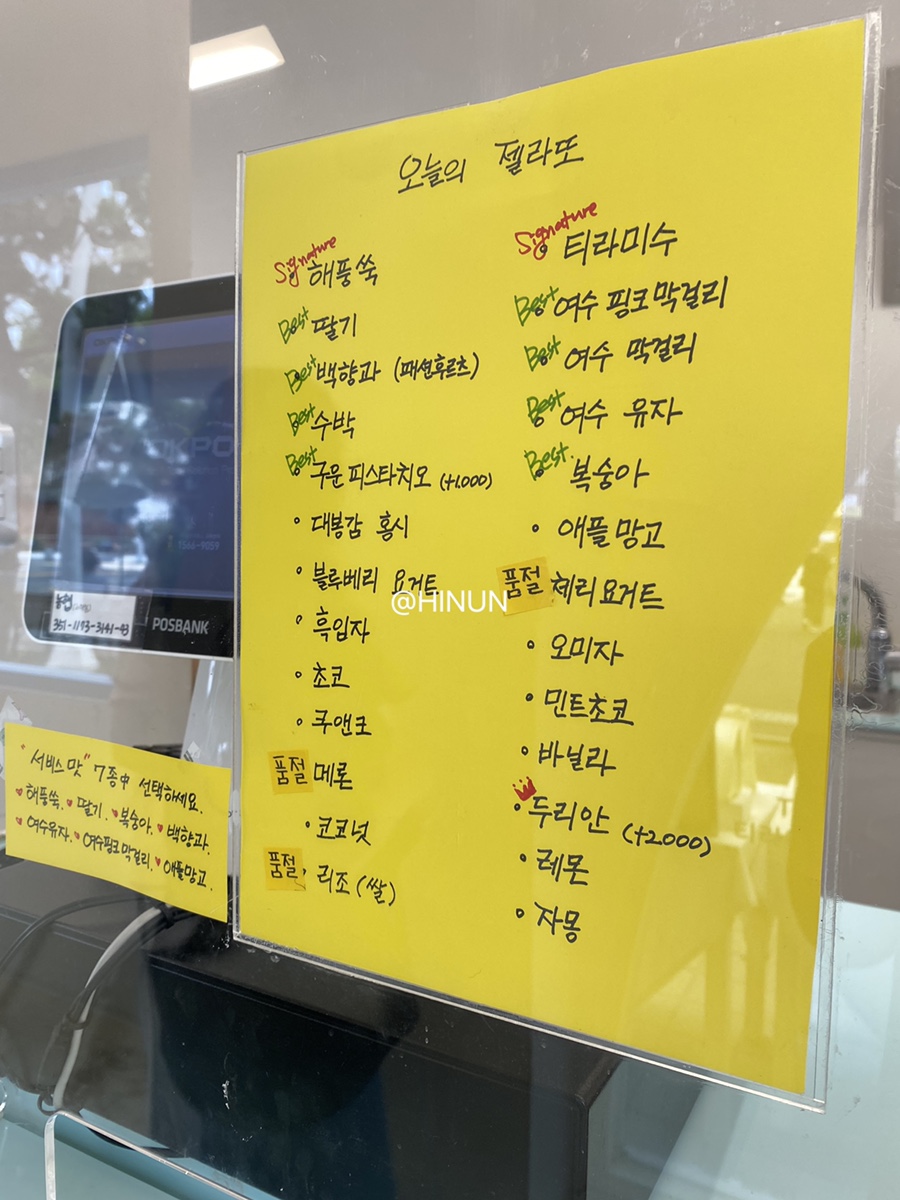 오늘의 젤라또
Signature 해풍쑥
Best 딸기
Best 백향과 (패션후르츠)
Best 수박
Best 구운 피스타치오 (+1.000)
• 대봉감 홍시
• 블루베리 요거트
• 흑임자
• 초코
• 쿠앤크
품절 메론
• 코코넛
품절 • 리조 (쌀)
Signature 티라미수
Best 여수 핑크 막걸리
Best 여수 막걸리
Best 여수 유자
Best 복숭아
• 애플망고
품절 체리요거트
• 오미자
• 민트초코
• 바닐라
• 두리안 (+2.000)
• 레몬
• 자몽
@HINUN
OKPO
1566-9059
농협
351-1193-3141-93
POSBANK
"서비스맛" 7종中 선택하세요.
해풍쑥. 딸기. 복숭아. 백향과.
여수유자. 여수핑크막걸리. 애플망고.